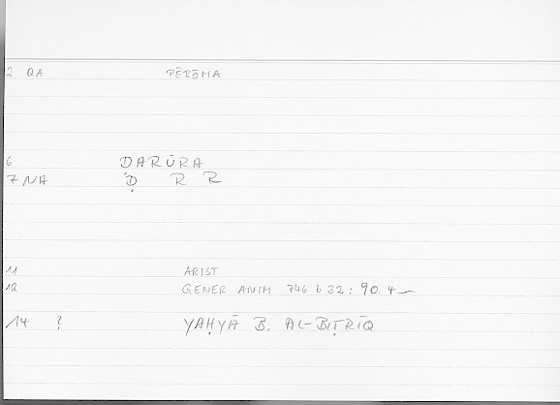 2 QA PĒRŌMA
6 ḌARŪRA
7 NA Ḍ R R
11 ARIST
12 GENER ANIM 746 b 32 : 90.4
14 ? YAḤYĀ B. AL-BIṬRĪQ